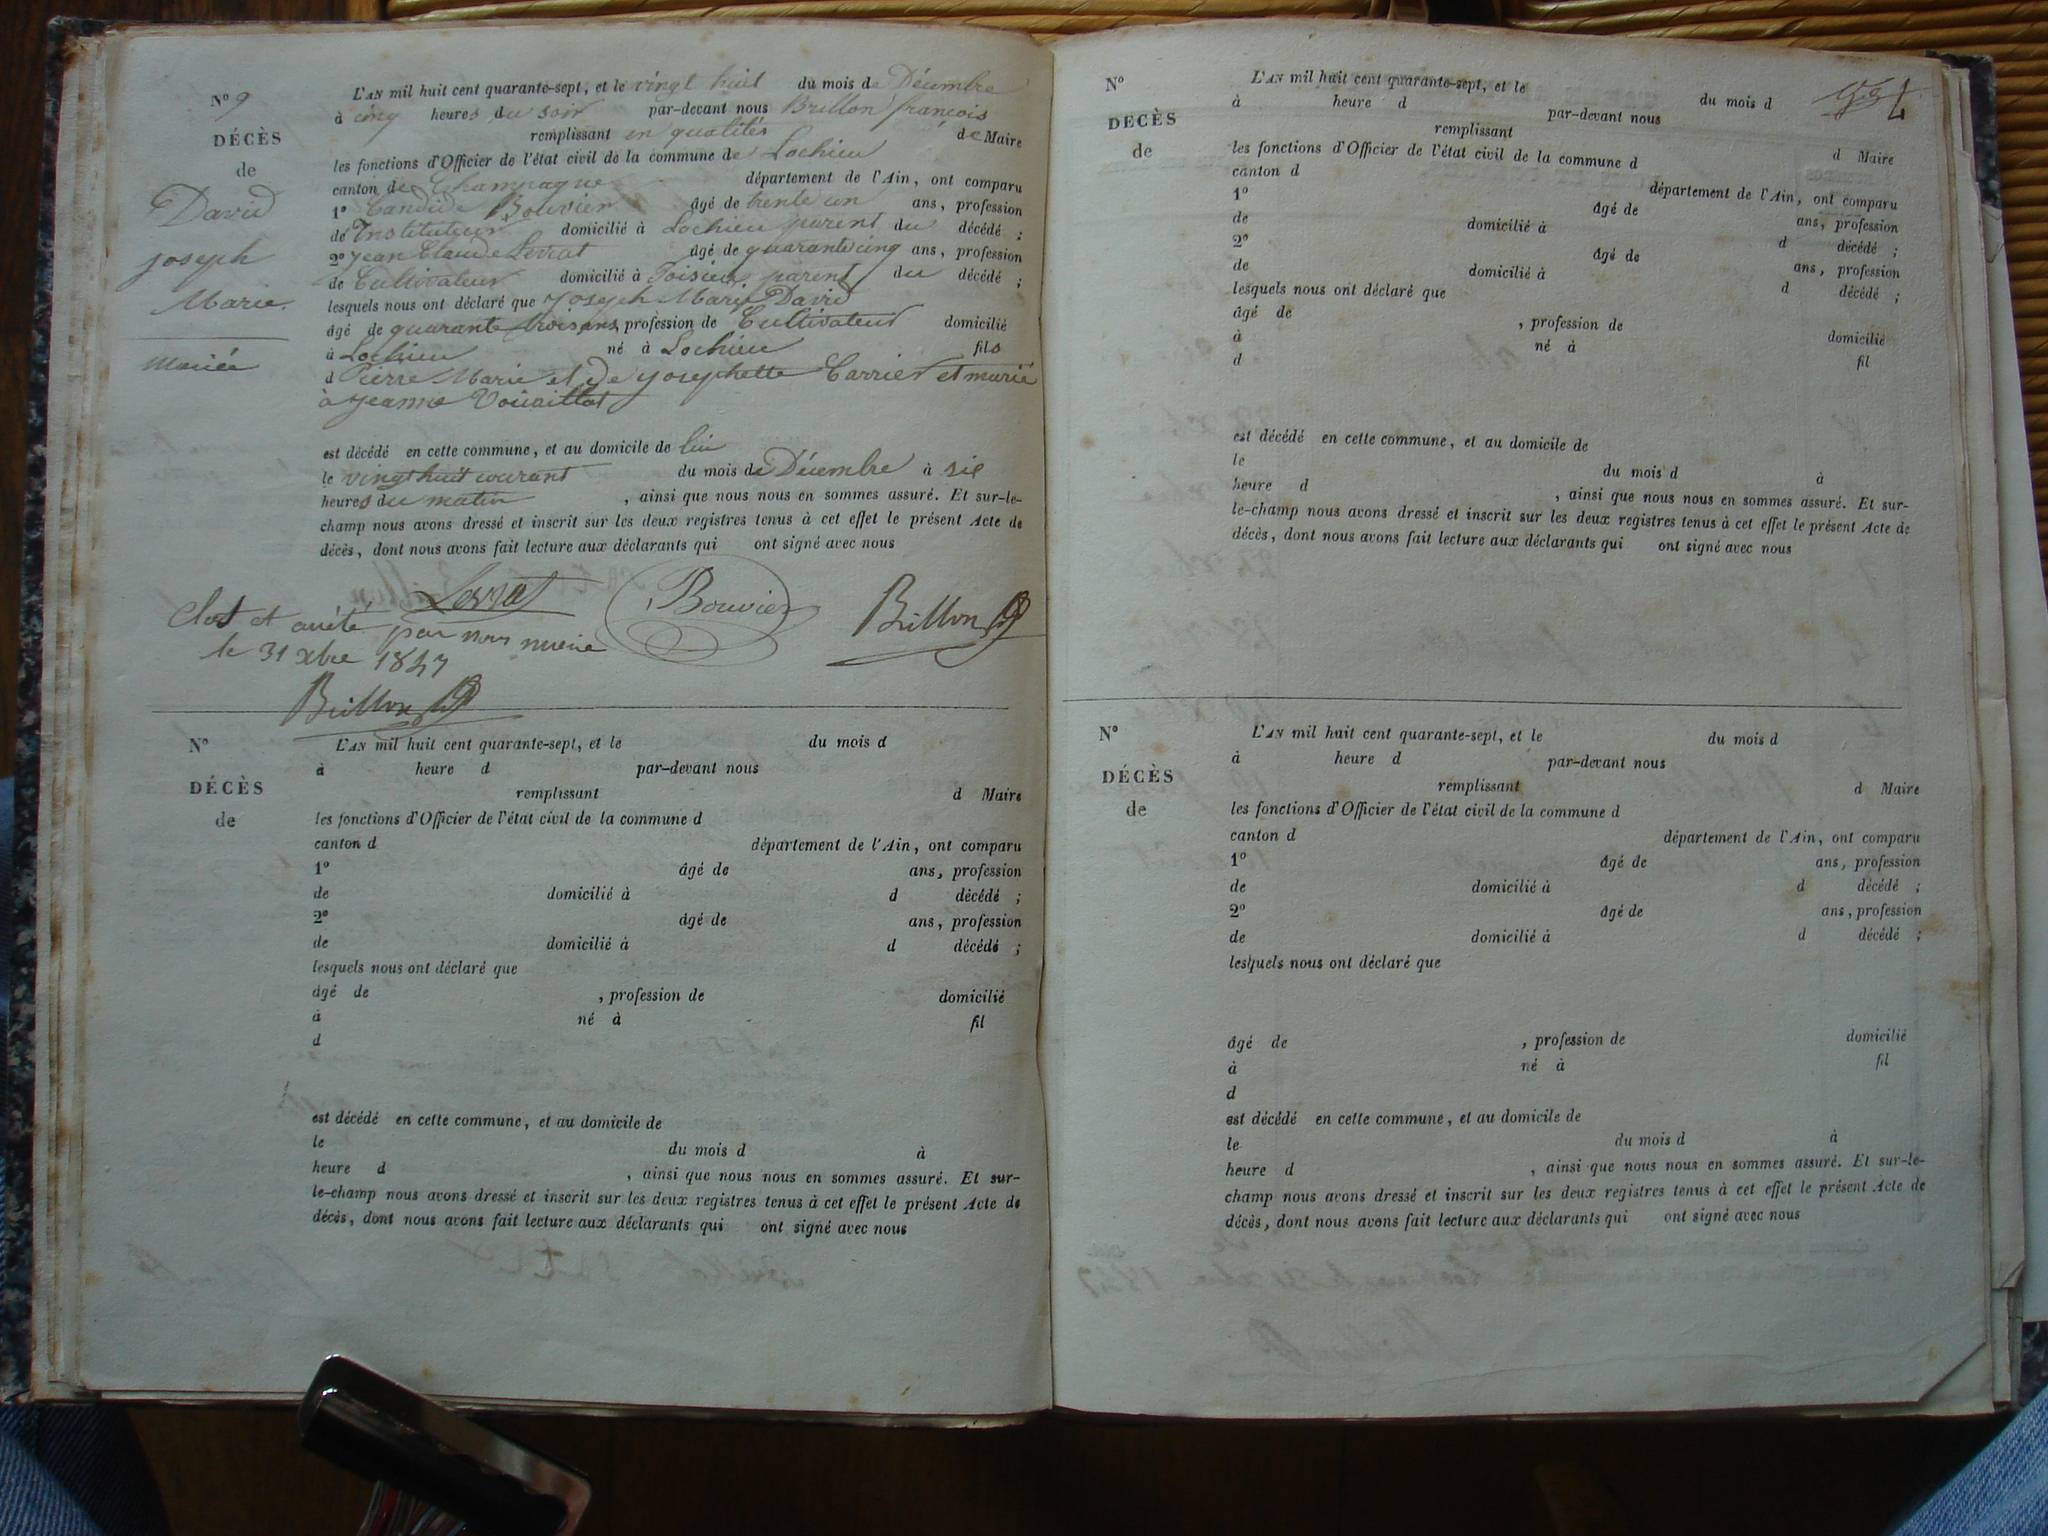 N° 9
DÉCÈS
de
David
joseph
Marie
Mariée
L'AN mil huit cent quarante-sept, et le vingt huit du mois de Décembre
à cinq heures du soir par-devant nous Brillon françois
remplissant en qualités de Maire
les fonctions d'Officier de l'état civil de la commune de Lochieu
canton de Champagne département de l'Ain, ont comparu
1° Candide Bouvier âgé de trente un ans, profession
de Instituteur domicilié à Lochieu parent du décédé ;
2° jean Claude Levrat âgé de quarante cinq ans, profession
de Cultivateur domicilié à parent du décédé ;
lesquels nous ont déclaré que Joseph Marie David
âgé de quarante trois ans, profession de Cultivateur domicilié
à Lochieu né à Lochieu fils
d Pierre Marie et de josephette Carrier et marié
à jeanne Vouaillat
est décédé en cette commune, et au domicile de lui
le vingt huit courant du mois de Décembre à six
heures du matin , ainsi que nous nous en sommes assuré. Et sur-le-
champ nous avons dressé et inscrit sur les deux registres tenus à cet effet le présent Acte de
décès, dont nous avons fait lecture aux déclarants qui ont signé avec nous
Levrat Bouvier Brillon
Clos et arrêté par nous maire
le 31 xbre 1847
Brillon
N°
DÉCÈS
de
L'AN mil huit cent quarante-sept, et le du mois d
à heure d par-devant nous
remplissant d Maire
les fonctions d'Officier de l'état civil de la commune d
canton d département de l'Ain, ont comparu
1° âgé de ans, profession
de domicilié à d décédé ;
2° âgé de ans, profession
de domicilié à d décédé ;
lesquels nous ont déclaré que
âgé de , profession de domicilié
à né à fil
d
est décédé en cette commune, et au domicile de
le du mois d à
heure d , ainsi que nous nous en sommes assuré. Et sur-
le-champ nous avons dressé et inscrit sur les deux registres tenus à cet effet le présent Acte de
décès, dont nous avons fait lecture aux déclarants qui ont signé avec nous
N°
DÉCÈS
de
L'AN mil huit cent quarante-sept, et le du mois d
à heure d par-devant nous
remplissant d Maire
les fonctions d'Officier de l'état civil de la commune d
canton d département de l'Ain, ont comparu
1° âgé de ans, profession
de domicilié à d décédé ;
2° âgé de ans, profession
de domicilié à d décédé ;
lesquels nous ont déclaré que
âgé de , profession de domicilié
à né à fil
d
est décédé en cette commune, et au domicile de
le du mois d à
heure d , ainsi que nous nous en sommes assuré. Et sur-
le-champ nous avons dressé et inscrit sur les deux registres tenus à cet effet le présent Acte de
décès, dont nous avons fait lecture aux déclarants qui ont signé avec nous
N°
DÉCÈS
de
L'AN mil huit cent quarante-sept, et le du mois d
à heure d par-devant nous
remplissant d Maire
les fonctions d'Officier de l'état civil de la commune d
canton d département de l'Ain, ont comparu
1° âgé de ans, profession
de domicilié à d décédé ;
2° âgé de ans, profession
de domicilié à d décédé ;
lesquels nous ont déclaré que
âgé de , profession de domicilié
à né à fil
d
est décédé en cette commune, et au domicile de
le du mois d à
heure d , ainsi que nous nous en sommes assuré. Et sur-le-
champ nous avons dressé et inscrit sur les deux registres tenus à cet effet le présent Acte de
décès, dont nous avons fait lecture aux déclarants qui ont signé avec nous